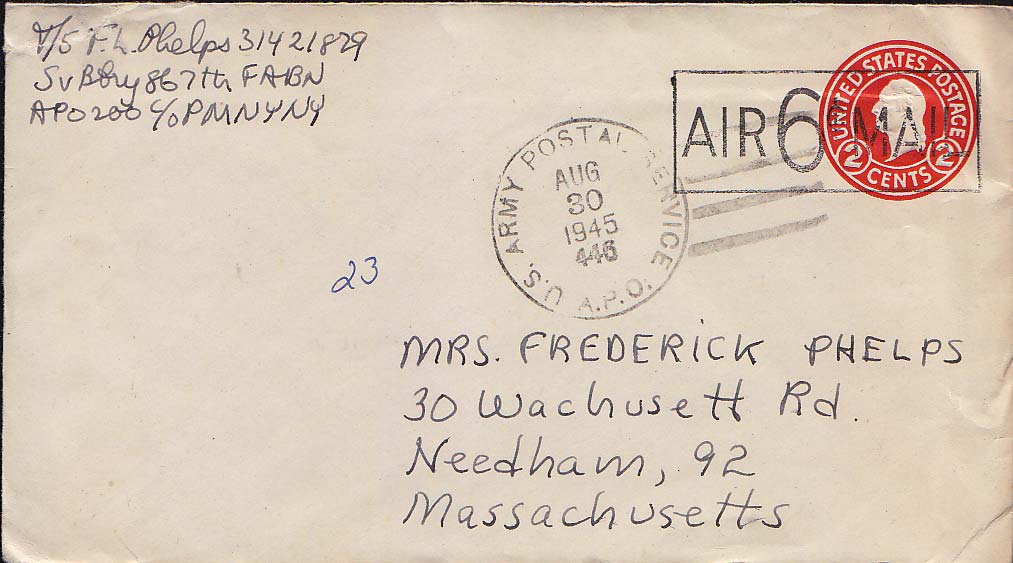 T/5 F.L. Phelps 31421879
Sv Btry 867th FABN
APO 200 c/o PM NY NY
UNITED STATES POSTAGE
2 CENTS 2
AIR 6¢ MAIL
U.S. ARMY POSTAL SERVICE
AUG
30
1945
446
A.P.O.
23
MRS. FREDERICK PHELPS
30 Wachusett Rd.
Needham, 92
Massachusetts